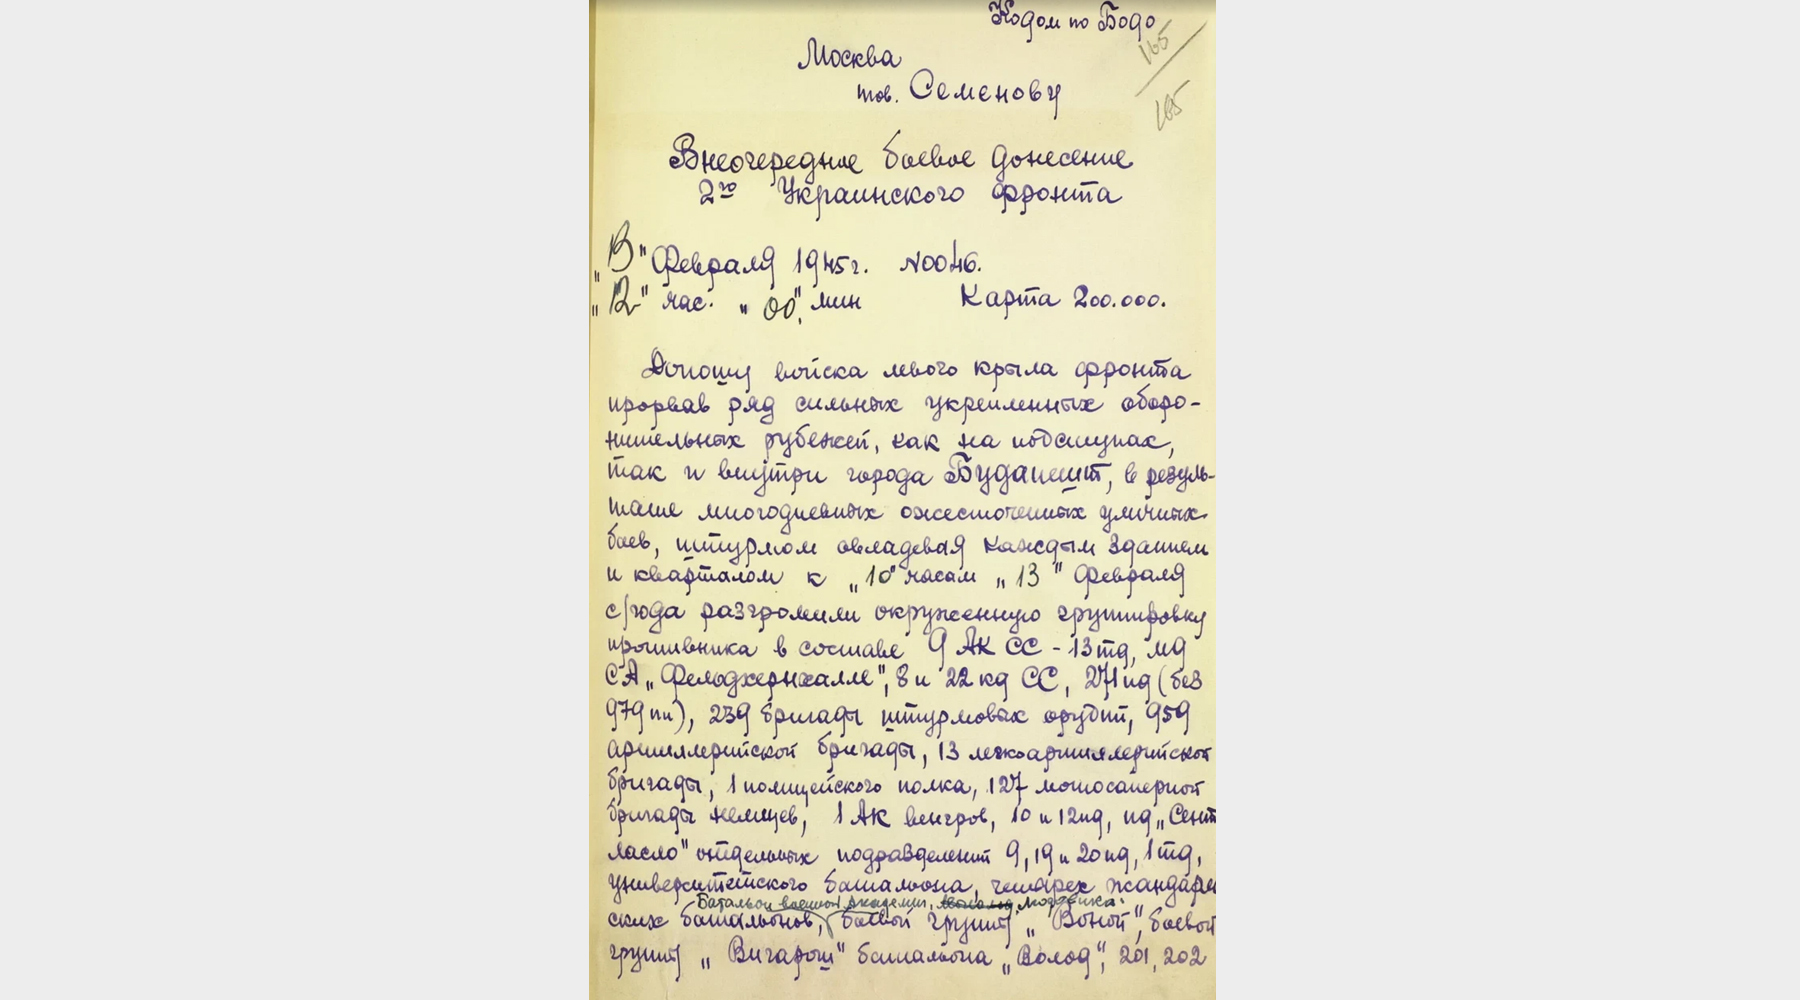 Кодом по Бодо
165
165
Москва
тов. Семенову
Внеочередное боевое донесение
2го Украинского фронта
"13" Февраля 1945г. №0046.
"12" час. "00" мин Карта 200.000.
Доношу войска левого крыла фронта
прорвав ряд сильных укрепленных оборо-
нительных рубежей, как на подступах,
так и внутри города Будапешт, в резуль-
тате многодневных ожесточенных уличных
боев, штурмом овладевая каждым зданием
и кварталом к "10" часам "13" Февраля
с/года разгромили окруженную группировку
противника в составе 9 АК СС - 13 тд, мд
СА "Фельдхернхалле", 8 и 22 кд СС, 271 пд (без
979 пп), 239 бригады штурмовых орудий, 959
артиллерийской бригады, 13 легкоартиллерийской
бригады, 1 полицейского полка, 127 мотосаперной
бригады немцев, 1 АК венгров, 10 и 12 пд, пд "Сент
ласло" отдельных подразделений 9, 19 и 20 пд, 1 тд,
университетского батальона, четырех жандарм
Батальон военной академии,
ских батальонов, боевой группы "Воной", боевой
группы "Вигарош" батальона "Волод", 201, 202